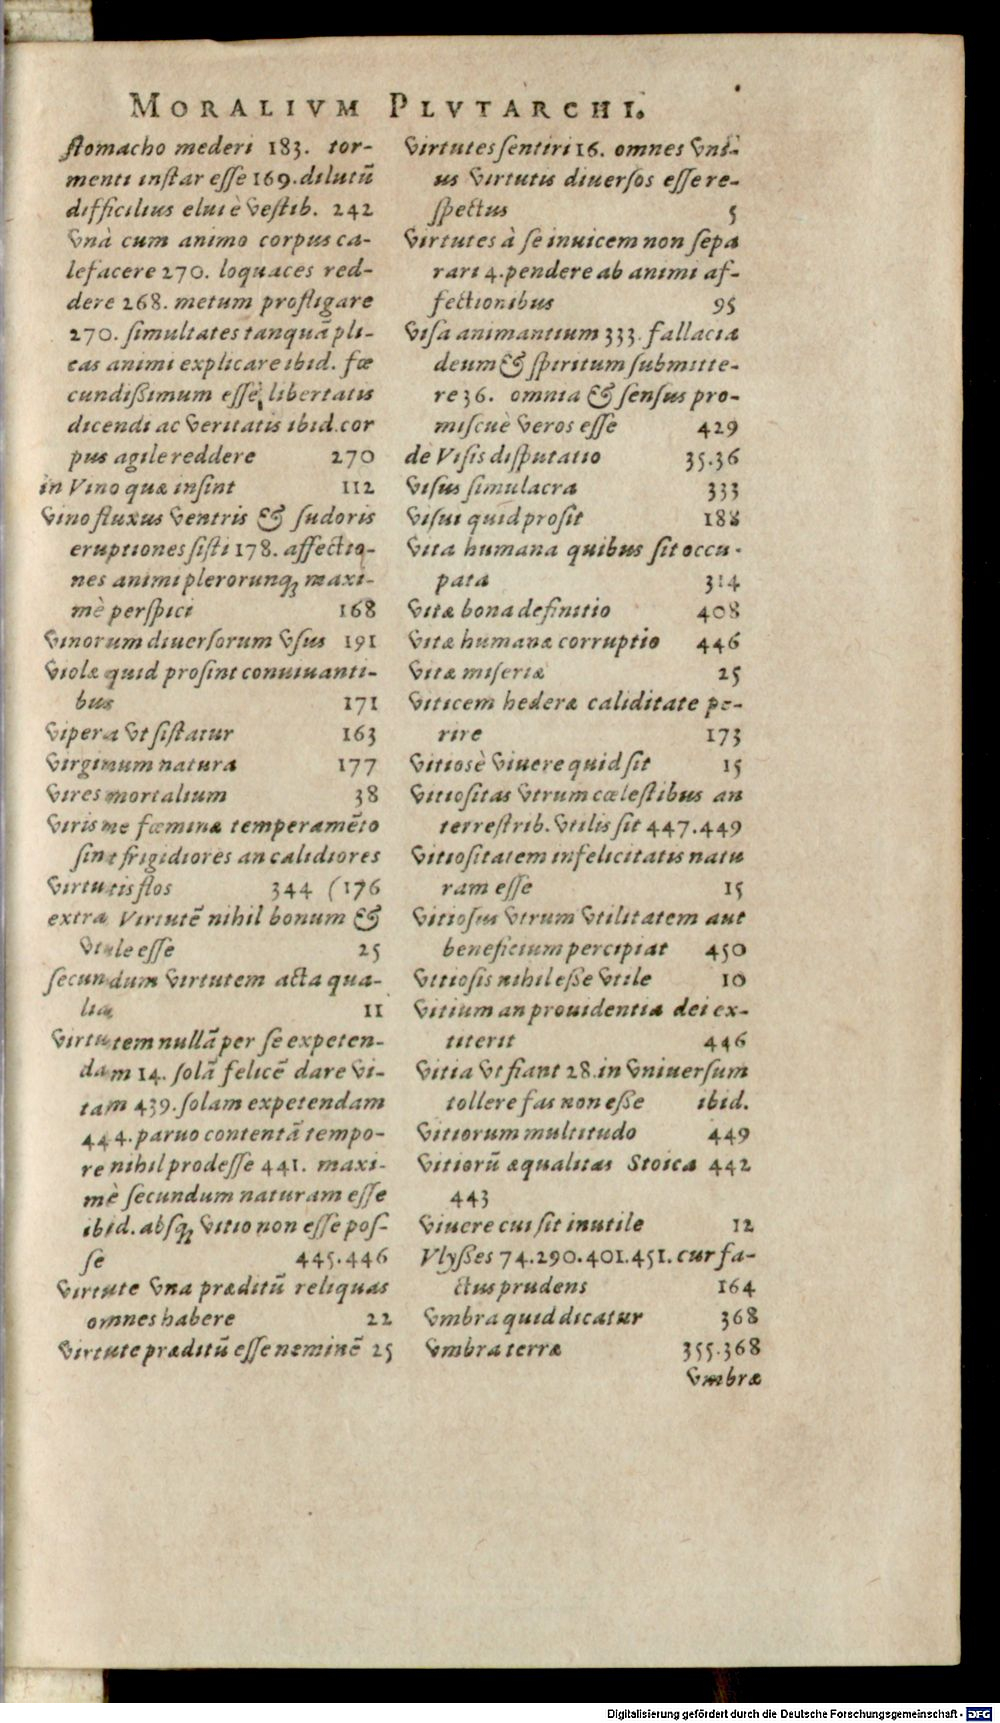 MORALIVM PLVTARCHI.
stomacho mederi 183. tor-
menti instar esse 169. dilutū
difficilius elui è vestib. 242
vnà cum animo corpus ca-
lefacere 270. loquaces red-
dere 268. metum profligare
270. simultates tanquā pli-
cas animi explicare ibid. fœ
cundißimum esse, libertatis
dicendi ac veritatis ibid. cor
pus agile reddere 270
in Vino quæ insint 112
Vino fluxus ventris & sudoris
eruptiones sisti 178. affectio-
nes animi plerorunq; maxi-
mè perspici 168
Vinorum diuersorum vsus 191
Violæ quid prosint conuiuanti-
bus 171
Vipera vt sistatur 163
Virginum natura 177
Vires mortalium 38
Viris ne fœminæ temperamēto
sint frigidiores an calidiores
Virtutis flos 344 (176
extra Virtutē nihil bonum &
vtile esse 25
secundum virtutem acta qua-
lia 11
Virtutem nullā per se expeten-
dam 14. solā felicē dare vi-
tam 439. solam expetendam
444. paruo contentā tempo-
re nihil prodesse 441. maxi-
mè secundum naturam esse
ibid. absq; vitio non esse pos-
se 445.446
Virtute vna præditū reliquas
omnes habere 22
Virtute præditū esse neminē 25
Virtutes sentiri 16. omnes vni-
us virtutis diuersos esse re-
spectus 5
Virtutes à se inuicem non sepa
rari 4. pendere ab animi af-
fectionibus 95
Visa animantium 333. fallacia
deum & spiritum submitte-
re 36. omnia & sensus pro-
miscuè veros esse 429
de Visis disputatio 35.36
Visus simulacra 333
Visui quid prosit 188
Vita humana quibus sit occu-
pata 314
Vitæ bona definitio 408
Vitæ humanæ corruptio 446
Vitæ miseria 25
Viticem hederæ caliditate pe-
rire 173
Vitiosè viuere quid sit 15
Vitiositas vtrum cœlestibus an
terrestrib. vtilis sit 447.449
Vitiositatem infelicitatis natu
ram esse 15
Vitiosus vtrum vtilitatem aut
beneficium percipiat 450
Vitiosis nihil eße vtile 10
Vitium an prouidentia dei ex-
titerit 446
Vitia vt fiant 28. in vniuersum
tollere fas non eße ibid.
Vitiorum multitudo 449
Vitiorū æqualitas Stoica 442
443
Viuere cui sit inutile 12
Vlyßes 74.290.401.451. cur fa-
ctus prudens 164
Vmbra quid dicatur 368
Vmbra terræ 355.368
Vmbræ
Digitalisierung gefördert durch die Deutsche Forschungsgemeinschaft - DFG